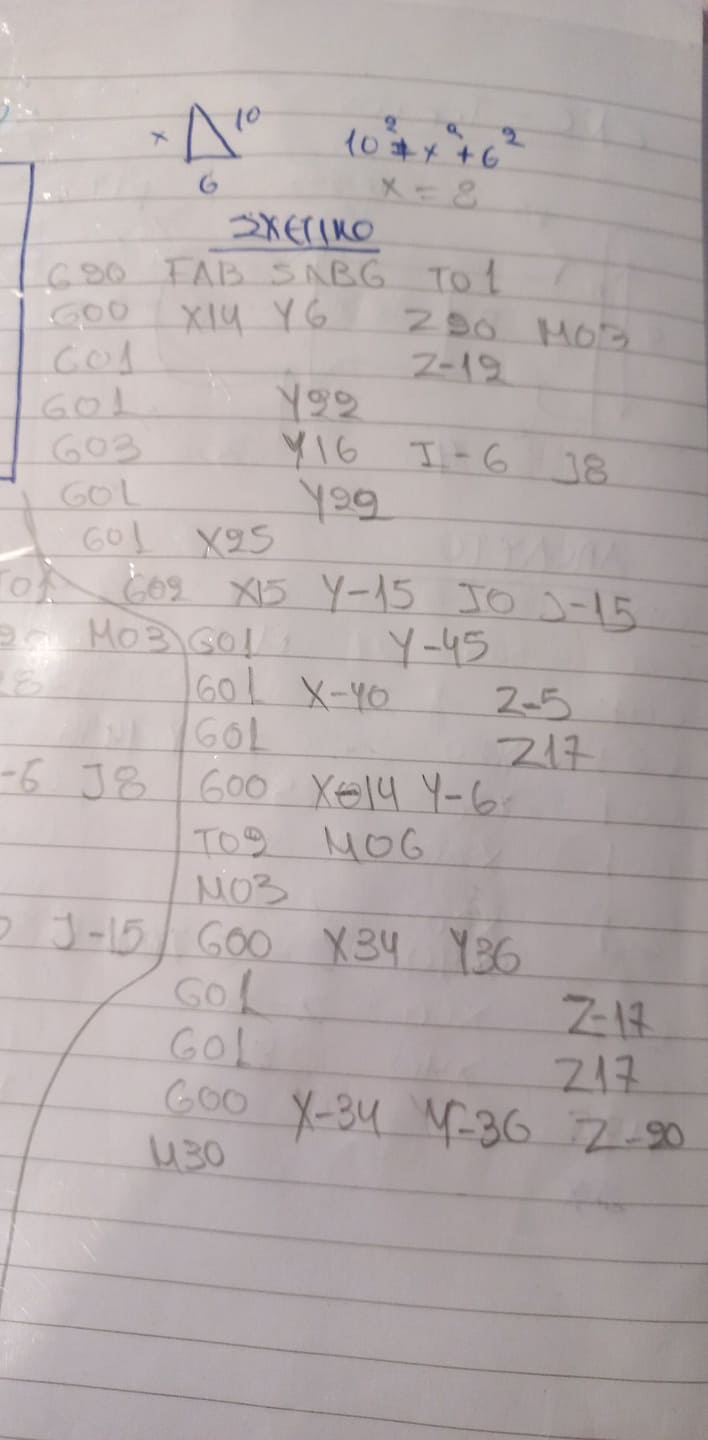 x 10
6
10² = x² + 6²
x = 8
ΣΧΕΤΙΚΟ
G90 FAB SABG T01
G00 X14 Y6 Z20 M03
G01 Z-12
G01 Y22
G03 Y16 I-6 J8
G01 Y22
G01 X25
G02 X15 Y-15 I0 J-15
M03 G01 Y-45
G01 X-40 Z-5
G01 Z17
-6 J8 G00 X-14 Y-6
T02 M06
M03
J-15 G00 X34 Y36
G01 Z-17
G01 Z17
G00 X-34 Y-36 Z-20
M30